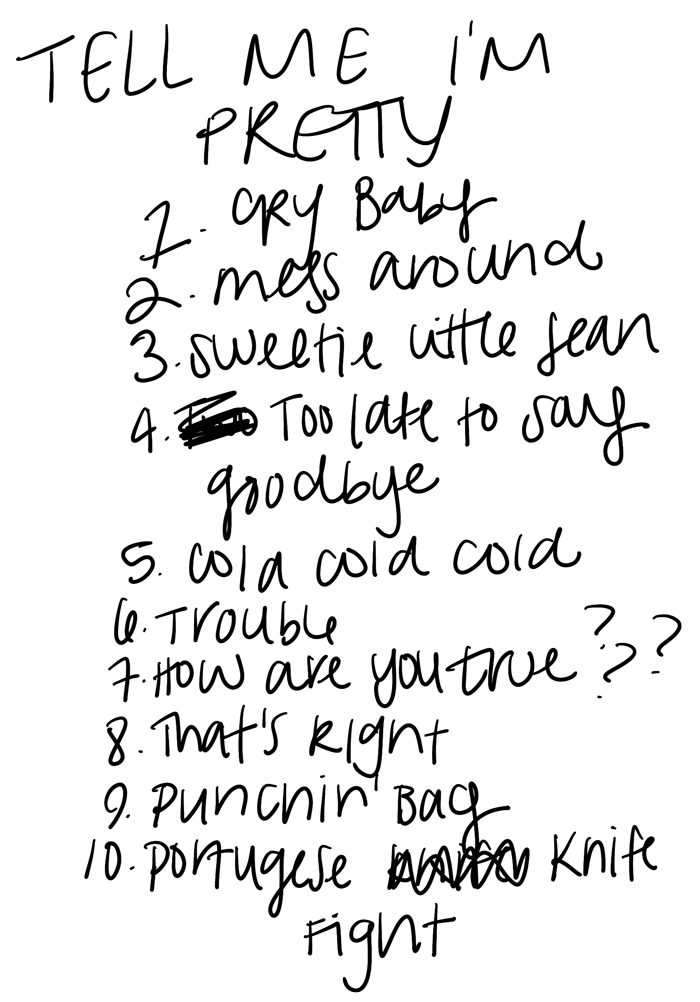 TELL ME I'M
PRETTY
1. CRY Baby
2. mess around
3. sweetie little Jean
4. Too late to say
goodbye
5. cold cold cold
6. Trouble
7. How are you true ???
8. That's Right
9. Punchin' Bag
10. Portugese Knife
Fight